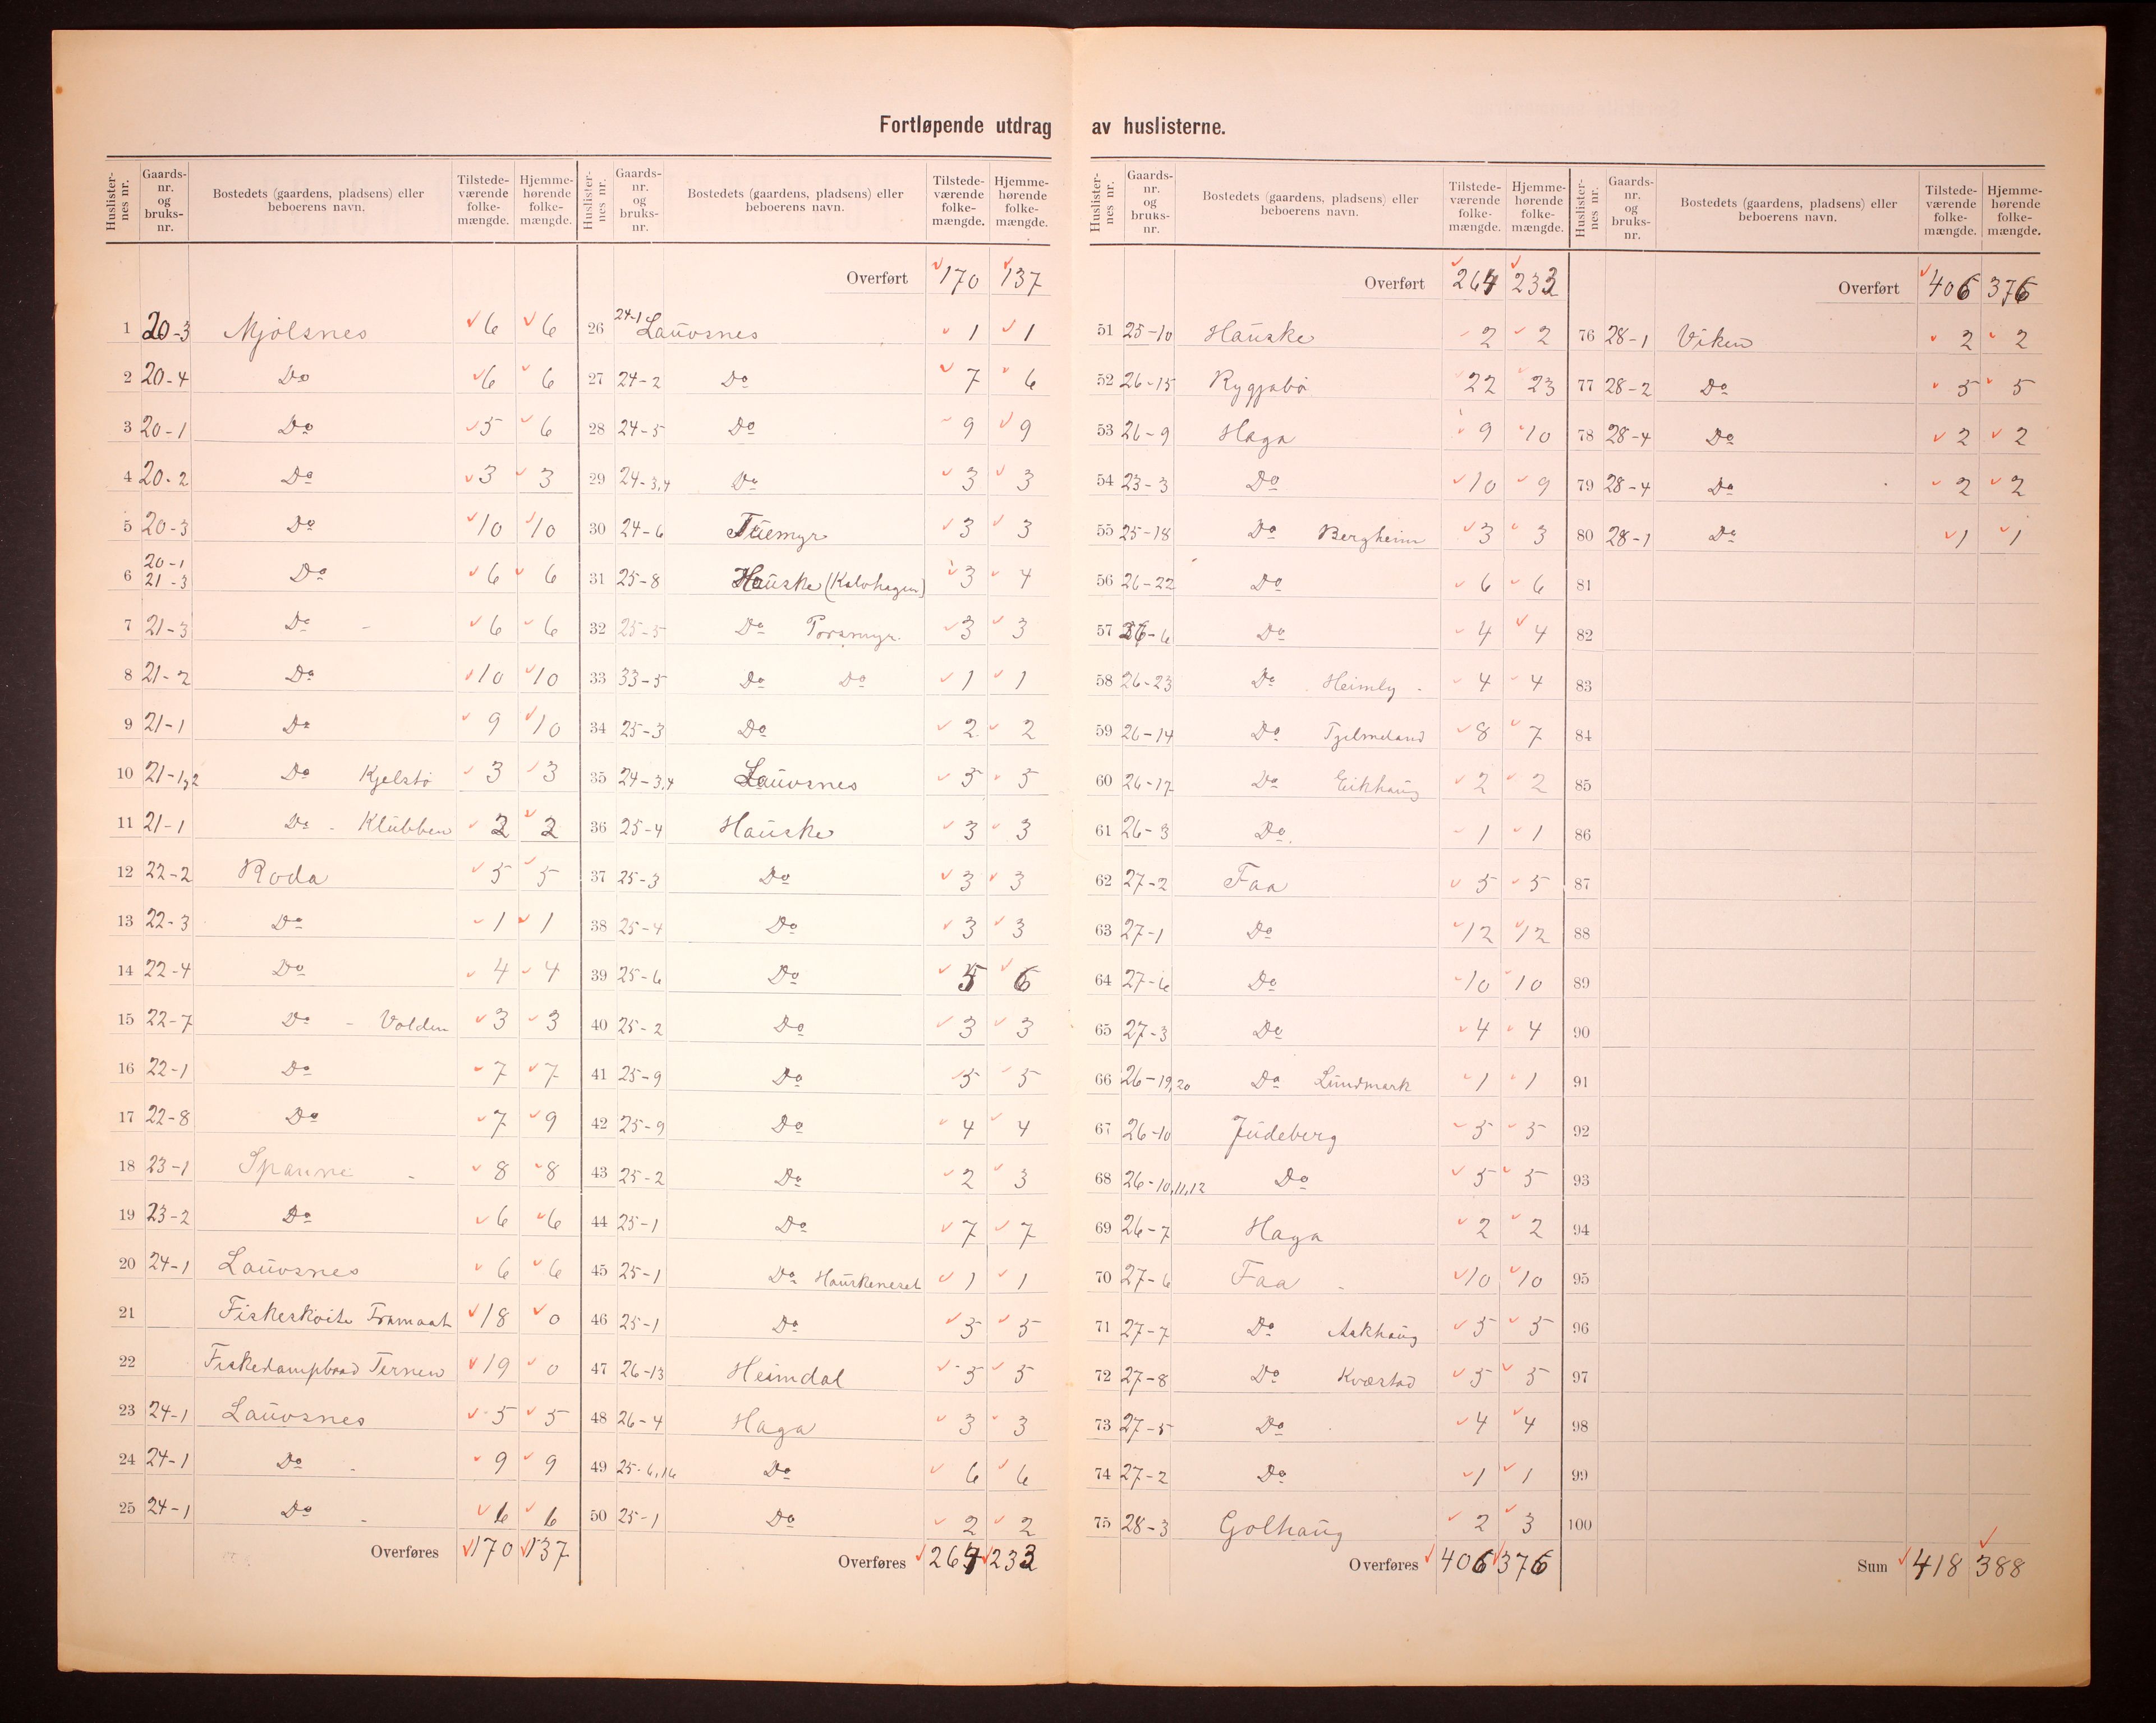 Fortløpende utdrag av huslisterne.
Huslisternes nr. Gaards-nr. og bruks-nr. Bostedets (gaardens, pladsens) eller beboerens navn. Tilstedeværende folkemængde. Hjemmehørende folkemængde.
1 20-3 Mjølsnes 6 6
2 20-4 Do 6 6
3 20-1 Do 5 6
4 20-2 Do 3 3
5 20-3 Do 10 10
6 20-1 21-3 Do 6 6
7 21-3 Do - 6 6
8 21-2 Do 10 10
9 21-1 Do 9 10
10 21-1,2 Do Kjelstø 3 3
11 21-1 Do - Klubben 2 2
12 22-2 Roda 5 5
13 22-3 Do 1 1
14 22-4 Do 4 4
15 22-7 Do - Volden 3 3
16 22-1 Do 7 7
17 22-8 Do 7 9
18 23-1 Spanne - 8 8
19 23-2 Do 6 6
20 24-1 Lauvsnes 6 6
21 Fiskeskøite Framaat 18 0
22 Fiskedampbaad Ternen 19 0
23 24-1 Lauvsnes 5 5
24 24-1 Do - 9 9
25 24-1 Do - 6 6
Overføres 170 137
Huslisternes nr. Gaards-nr. og bruks-nr. Bostedets (gaardens, pladsens) eller beboerens navn. Tilstedeværende folkemængde. Hjemmehørende folkemængde.
Overført 170 137
26 24-1 Lauvsnes 1 1
27 24-2 Do 7 6
28 24-5 Do 9 9
29 24-3,4 Do 3 3
30 24-6 Tuemyr 3 3
31 25-8 Hauske (Kalvhagen) 3 4
32 25-5 Do Porsmyr. 3 3
33 33-5 Do Do 1 1
34 25-3 Do 2 2
35 24-3,4 Lauvsnes 5 5
36 25-4 Hauske 3 3
37 25-3 Do 3 3
38 25-4 Do 3 3
39 25-6 Do 5 6
40 25-2 Do 3 3
41 25-9 Do 5 5
42 25-9 Do 4 4
43 25-2 Do 2 3
44 25-1 Do 7 7
45 25-1 Do Hauskeneset 1 1
46 25-1 Do 5 5
47 26-13 Heimdal 5 5
48 26-4 Haga 3 3
49 25-6,16 Do 6 6
50 25-1 Do 2 2
Overføres 264 233
Huslisternes nr. Gaards-nr. og bruks-nr. Bostedets (gaardens, pladsens) eller beboerens navn. Tilstedeværende folkemængde. Hjemmehørende folkemængde.
Overført 264 233
51 25-10 Hauske 2 2
52 26-15 Rygjabø 22 23
53 26-9 Haga 9 10
54 23-3 Do 10 9
55 25-18 Do Bergheim 3 3
56 26-22 Do 6 6
57 26-6 Do 4 4
58 26-23 Do Heimly - 4 4
59 26-14 Do Tjelmeland 8 7
60 26-17 Do Eikhaug 2 2
61 26-3 Do 1 1
62 27-2 Faa 5 5
63 27-1 Do 12 12
64 27-6 Do 10 10
65 27-3 Do 4 4
66 26-19,20 Do Lundmark 1 1
67 26-10 Judeberg 5 5
68 26-10,11,12 Do 5 5
69 26-7 Haga 2 2
70 27-6 Faa - 10 10
71 27-7 Do Askhaug 5 5
72 27-8 Do Kvæstad 5 5
73 27-5 Do 4 4
74 27-2 Do 1 1
75 28-3 Golhaug 2 3
Overføres 406 376
Huslisternes nr. Gaards-nr. og bruks-nr. Bostedets (gaardens, pladsens) eller beboerens navn. Tilstedeværende folkemængde. Hjemmehørende folkemængde.
Overført 406 376
76 28-1 Viken 2 2
77 28-2 Do 5 5
78 28-4 Do 2 2
79 28-4 Do 2 2
80 28-1 Do 1 1
81
82
83
84
85
86
87
88
89
90
91
92
93
94
95
96
97
98
99
100
Sum 418 388